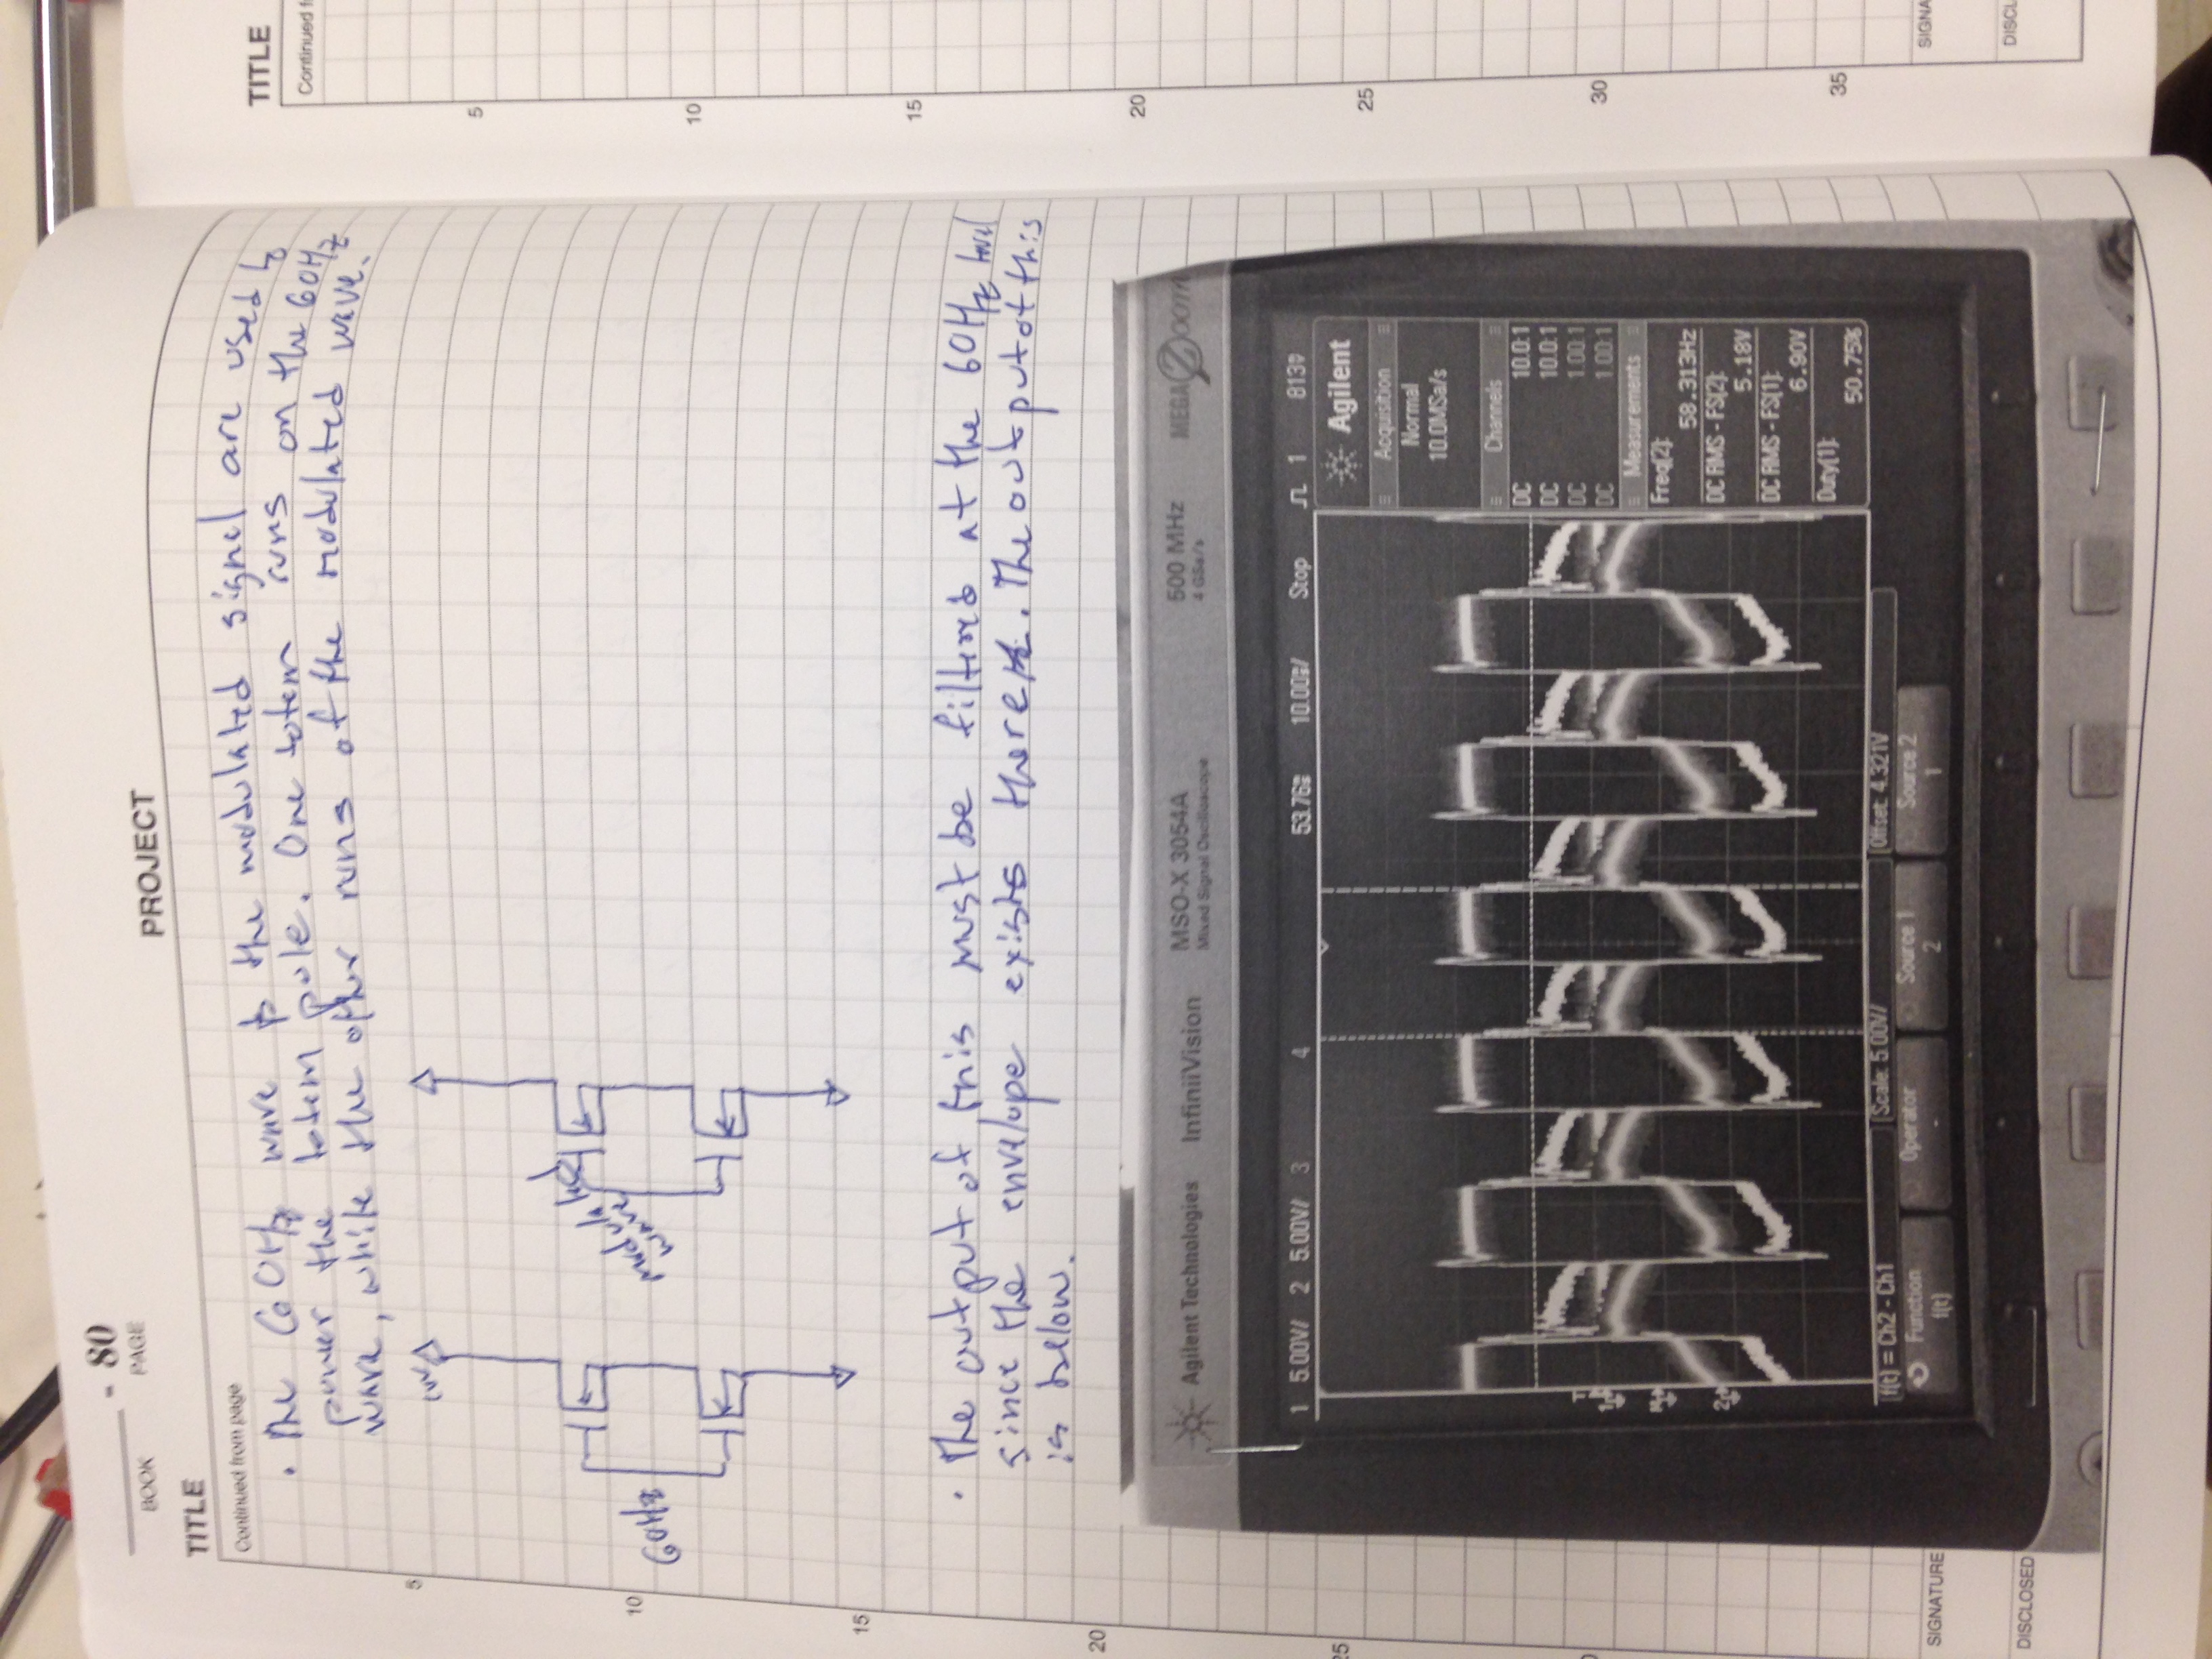 BOOK
- 80
PAGE
PROJECT
TITLE
Continued from page
• The 60Hz wave & the modulated signal are used to
power the totem pole. One totem runs on the 60Hz
wave, while the other runs of the modulated wave.
5
10
60Hz
modulated
wave
15
• The output of this must be filtered at the 60Hz level
since the envelope exists there. The output of this
is below.
20
Agilent Technologies
InfiniiVision
MSO-X 3054A
Mixed Signal Oscilloscope
500 MHz
4 GSa/s
MEGA Zoom
1 5.00V/ 2 5.00V/ 3 4 53.76s 10.00s/ Stop 1 813
Agilent
Acquisition
Normal
10.0MSa/s
Channels
DC 10.0:1
DC 10.0:1
DC 1.00:1
DC 1.00:1
Measurements
Freq(2):
58.313Hz
DC RMS - FS(2):
5.18V
DC RMS - FS(1):
6.90V
Duty(1):
50.75%
f(t) = Ch2 - Ch1
Scale: 5.00V/
Offset: 4.321V
Function
f(t)
Operator
-
Source 1
2
Source 2
1
25
SIGNATURE
DISCLOSED
TITLE
Continued f
5
10
15
20
25
30
35
SIGNA
DISCL